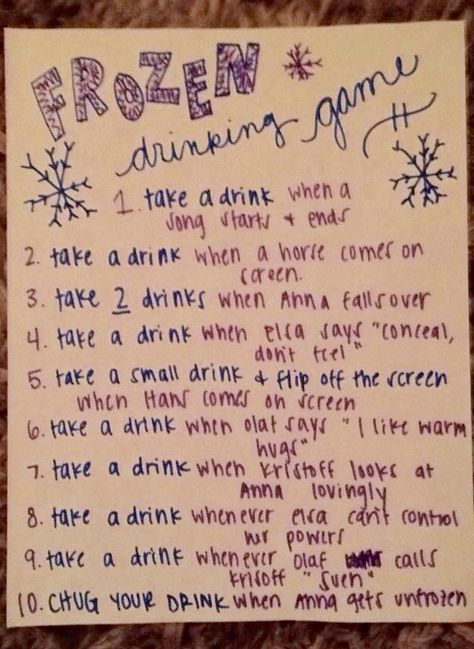 FROZEN
drinking game
1. take a drink when a
song starts + ends
2. take a drink when a horse comes on
screen.
3. take 2 drinks when Anna falls over
4. take a drink when Elsa says "conceal,
don't feel"
5. take a small drink & flip off the screen
when Hans comes on screen
6. take a drink when olaf says "I like warm
hugs"
7. take a drink when Kristoff looks at
Anna lovingly
8. take a drink whenever elsa can't control
her powers
9. take a drink whenever Olaf calls
Kristoff "Sven"
10. CHUG YOUR DRINK when Anna gets unfrozen